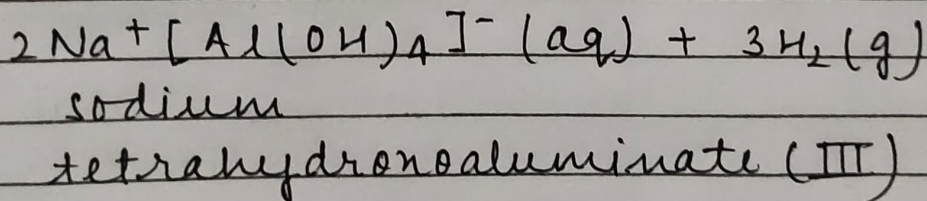 2Na⁺[Al(OH)₄]⁻(aq) + 3H₂(g)
sodium
tetrahydronoaluminate (III)